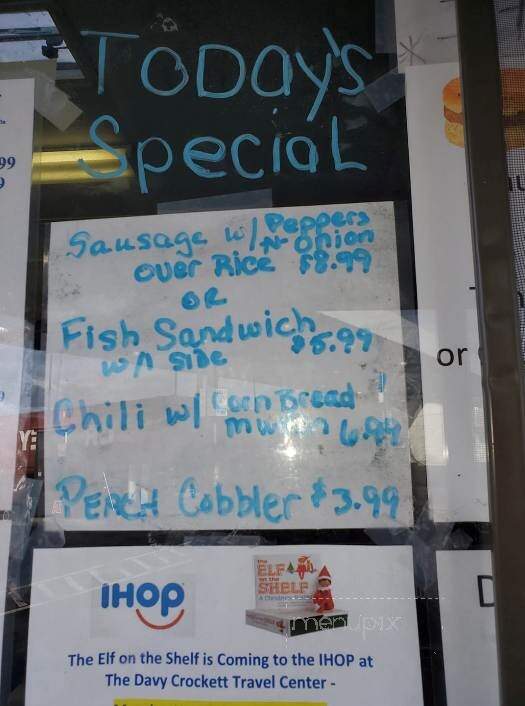 Today's
Special
Sausage w/ Peppers
N Onion
over Rice $8.99
or
Fish Sandwich
w/A side $5.99
Chili w/ Corn Bread
muffin 6.99
Peach Cobbler $3.99
99
9
or
IHOP
the
ELF
on the
SHELF
menupix
The Elf on the Shelf is Coming to the IHOP at
The Davy Crockett Travel Center -